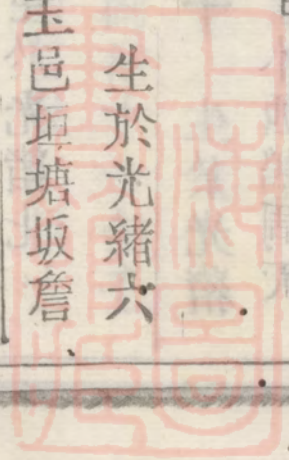 生於光緒六
玉邑垣塘坂詹